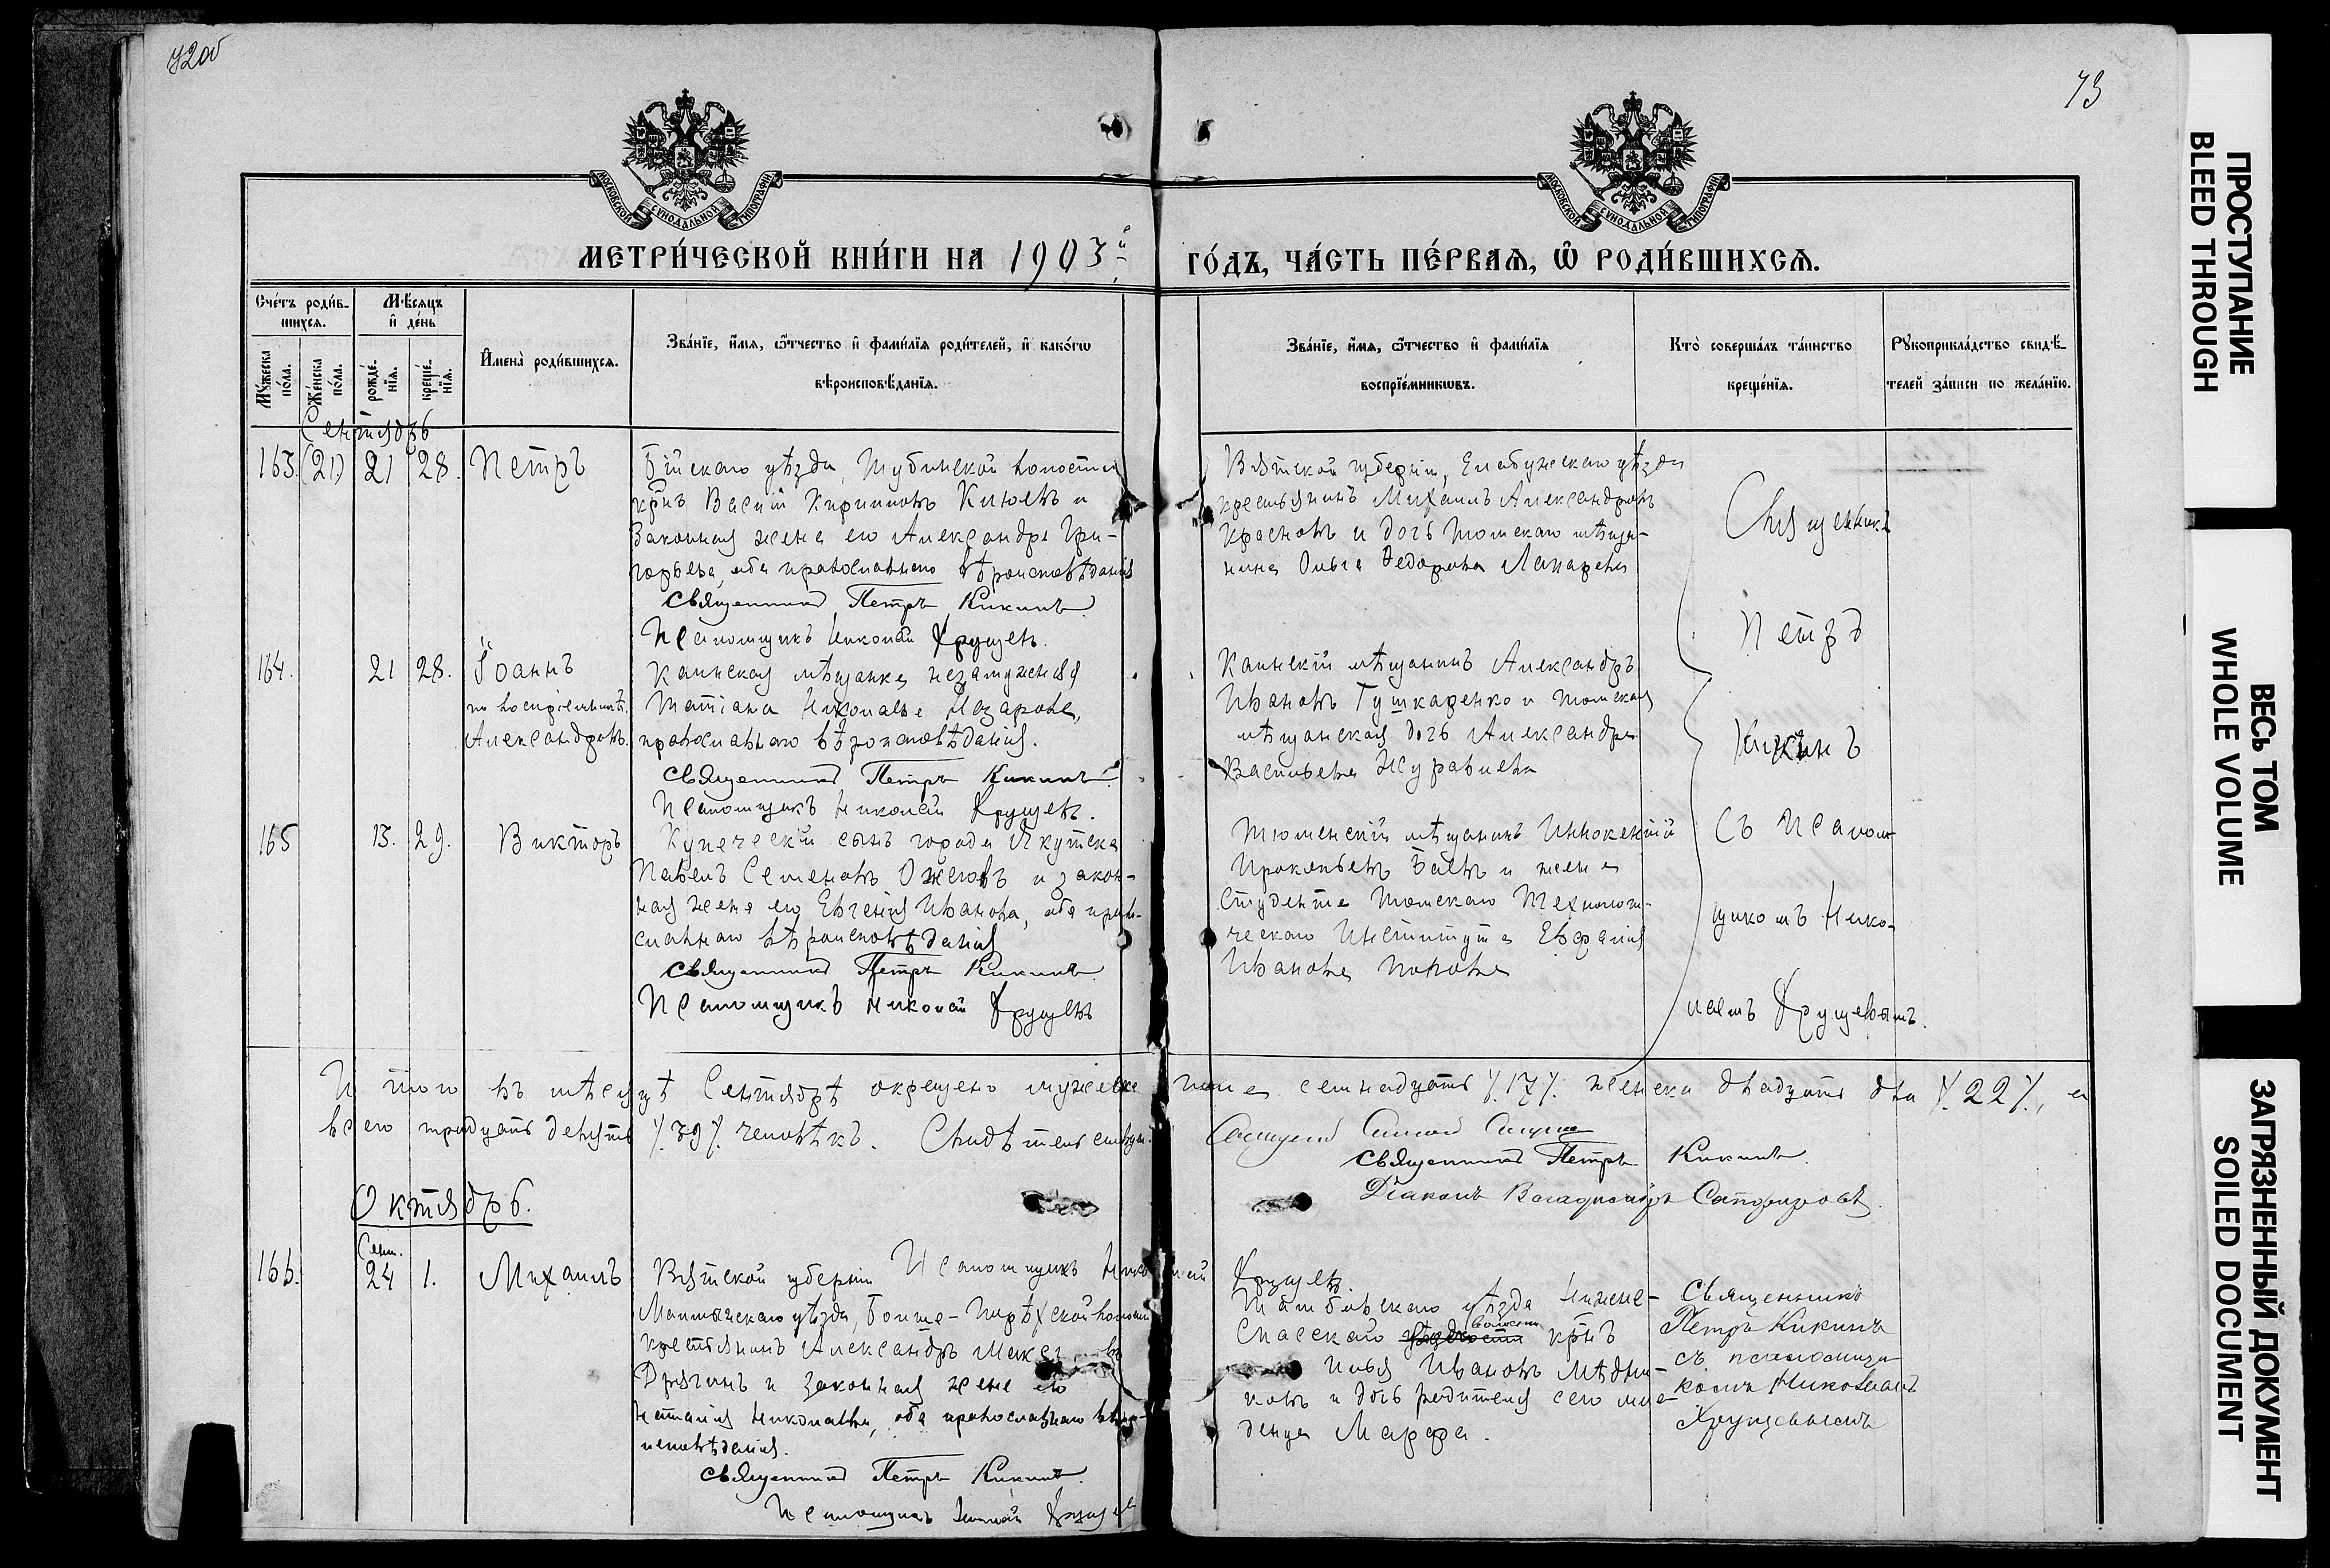 72об
73
МОСКОВСКОЙ СѴНОДАЛЬНОЙ ТИПОГРАФІИ
МОСКОВСКОЙ СѴНОДАЛЬНОЙ ТИПОГРАФІИ
МЕТРИ́ЧЕСКОЙ КНИ́ГИ НА 1903й
ГО́ДЪ, ЧА́СТЬ ПЕ́РВАѦ, Ѡ҆ РОДИ́ВШИХСѦ.
Сче́тъ роди́в-
шихсѧ.
Мꙋ́жеска по́ла.
Же́нска по́ла.
Мѣ́сѧцъ и҆ де́нь
рожде́-нїѧ.
креще́-нїѧ.
И҆мена̀ роди́вшихсѧ.
Зва́нїе, и҆́мѧ, ѻ҆́тчество и҆ фами́лїѧ роди́телей, и҆ како́гѡ
вѣроисповѣ́данїѧ.
Зва́нїе, и҆́мѧ, ѻ҆́тчество и҆ фами́лїѧ
воспрїе́мникѡвъ.
Кто̀ соверша́лъ та́инство
креще́нїѧ.
Рꙋкоприкла́дство свидѣ́-
телей за́писи по жела́нїю.
Сентябрь
163. (21) 21 28. Петръ
Бійскаго уѣзда, волости
крнъ Кирилловъ и
законная жена его Александра Гри-
горьева, оба православнаго вѣроисповѣданія
Священникъ Петръ Кикинъ
Псаломщикъ Николай Хрущевъ.
Вятской губерніи, Елабужскаго уѣзда
крестьянинъ Михаилъ Александровъ
Красновъ и дочь томскаго мѣща-
нина Ольга Федорова
164. 21 28. Іоаннъ
по воспріемникѣ
Александровъ.
Каинская мѣщанка незамужняя
Татіана Николаева Назарова,
православнаго вѣроисповѣданія.
Священникъ Петръ Кикинъ
Псаломщикъ Николай Хрущевъ.
Каинскій мѣщанинъ Александръ
Ивановъ Гушкаренко и томская
мѣщанская дочь Александра
Васильева Журавлева
165 13. 29. Викторъ
Купеческій сынъ города Якутска
Павелъ Семеновъ Ожеговъ и закон-
ная жена его Евгенія Иванова, оба право-
славнаго вѣроисповѣданія
Священникъ Петръ Кикинъ
Псаломщикъ Николай Хрущевъ
Тюменскій мѣщанинъ Иннокентій
Прокопьевъ и жена
студента Томскаго Технологи-
ческаго Института
Иванова Попова
Священникъ
Петръ
Кикинъ
съ Псалом-
щикомъ Нико-
лаемъ Хрущевымъ.
Итого въ мѣсяцѣ Сентябрѣ окрещено мужеска пола семнадцать /.17/. женска двадцать два /.22/., а
всего тридцать девять /.39/. человѣкъ. Свидѣтельствуемъ
Священникъ Петръ Кикинъ.
Діаконъ Владиміръ
Псаломщикъ Николай Хрущевъ.
Октябрь.
166. Сент. 24 1. Михаилъ
Вятской губерніи
Малмыжскаго уѣзда, волости
крестьянинъ Александръ
и законная жена его
Наталія Николаева, оба православнаго вѣро-
исповѣданія.
Священникъ Петръ Кикинъ.
Псаломщикъ Николай Хрущевъ
Тамбовскаго уѣзда Нижне-
Спасскаго волости крнъ
Илья Ивановъ Мѣдни-
ковъ и дочь родителя сего мла-
денца Марфа.
Священникъ
Петръ Кикинъ
съ псаломщи-
комъ Николаемъ
Хрущевымъ
ПРОСТУПАНИЕ
BLEED THROUGH
ВЕСЬ ТОМ
WHOLE VOLUME
ЗАГРЯЗНЕННЫЙ ДОКУМЕНТ
SOILED DOCUMENT